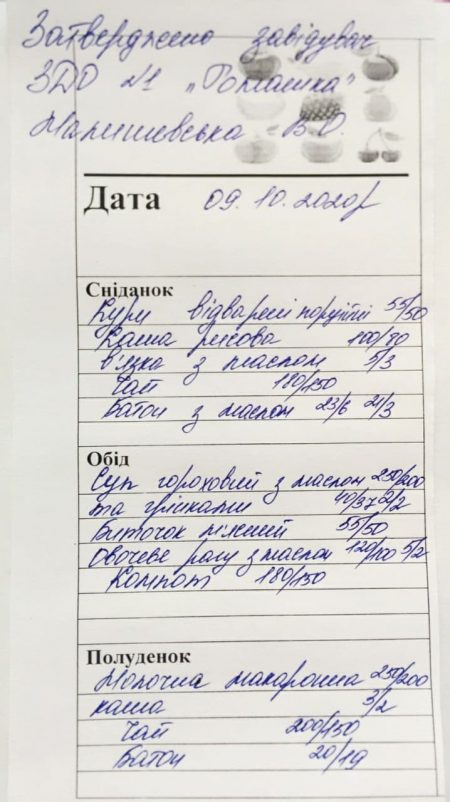 Затверджено завідувач
ЗДО №1 „Ромашка"
Малишевська В.О.
Дата 09.10.2020р
Сніданок
Кури відварені порційні 55/50
Каша рисова 100/80
в'язка з маслом 5/3
Чай 180/150
Батон з маслом 23/6 21/3
Обід
Суп гороховий з маслом 250/200
та грінками 40/37 2/2
Биточок ніжний 55/50
Овочеве рагу з маслом 120/100 5/2
Компот 180/150
Полуденок
Молочна макаронна 250/200
каша 3/2
Чай 200/150
Батон 20/19